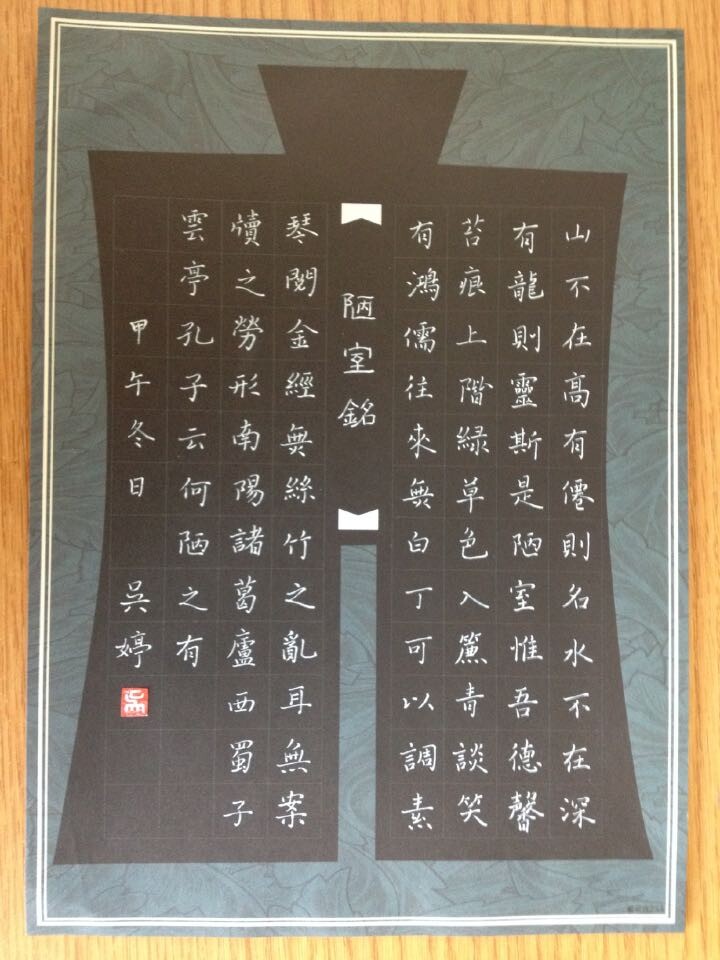 山不在高有僊則名水不在深
有龍則靈斯是陋室惟吾德馨
苔痕上階緑草色入簾青談笑
有鴻儒往來無白丁可以調素
陋室銘
琴閲金經無絲竹之亂耳無案
牘之勞形南陽諸葛廬西蜀子
雲亭孔子云何陋之有
甲午冬日 吳婷